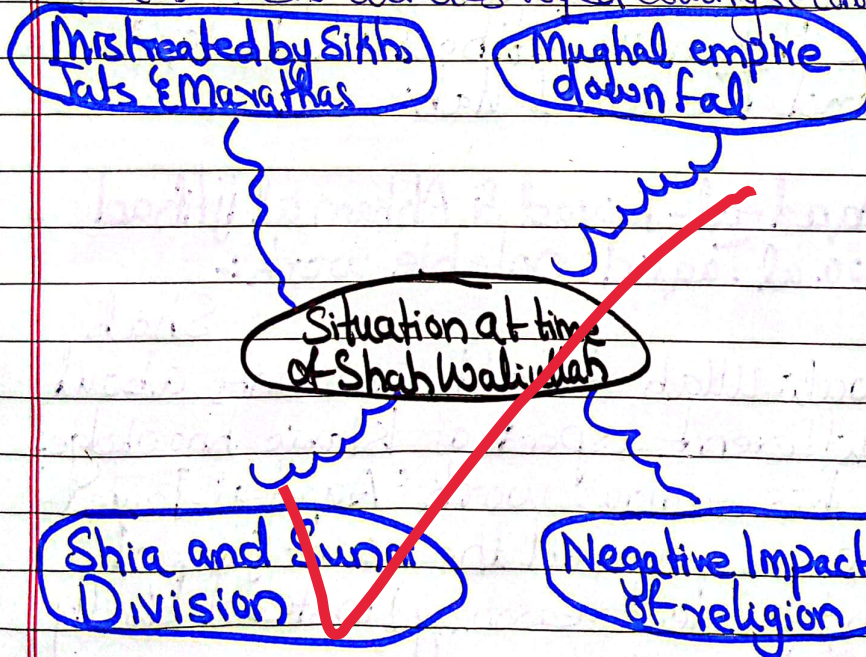 Mistreated by Sikhs
Jats & Marathas
Mughal empire
downfal
Situation at time
of Shah Waliullah
Shia and Sunni
Division
Negative Impact
of religion